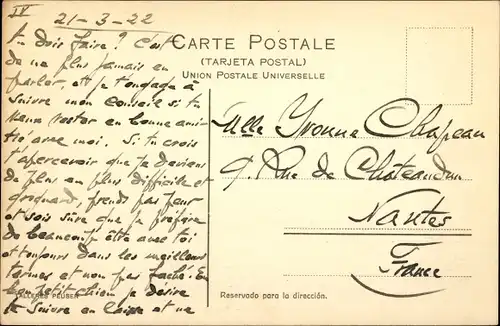 IV
21-3-22
tu dois faire? C'est
de ne plus jamais en
parler, et je t'engage à
suivre mon conseil si tu
veux rester en bonne ami-
tié avec moi. Si tu crois
t'apercevoir que je deviens
de plus en plus difficile et
grognard, prends pas peur
et sois sûre que je préfère
de beaucoup être avec toi
et toujours dans les meilleurs
termes et non pas fâché. En
bon petit chien je désire
te suivre en laisse et ne
CARTE POSTALE
(TARJETA POSTAL)
UNION POSTALE UNIVERSELLE
Mlle Yvonne Chapeau
9, Rue de Châteaudun
Nantes
France
TALLERES PEUSER
Reservado para la dirección.